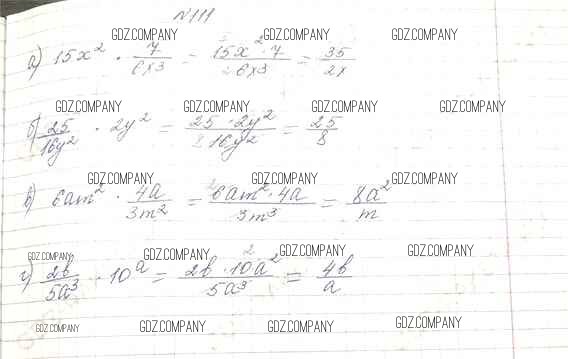 №111
GDZ.COMPANY GDZ.COMPANY GDZ.COMPANY
а) 15x² · 7/6x3 = 15x² · 7/6x3 = 35/2x
GDZ.COMPANY GDZ.COMPANY GDZ.COMPANY
б) 25/16y² · 2y² = 25 · 2y²/16y² = 25/8
GDZ.COMPANY GDZ.COMPANY GDZ.COMPANY
в) 6am² · 4a/3m² = 6am² · 4a/3m³ = 8a²/m
GDZ.COMPANY GDZ.COMPANY GDZ.COMPANY GDZ.COMPANY
г) 2b/5a³ · 10a = 2b · 10a²/5a³ = 4b/a
GDZ.COMPANY GDZ.COMPANY GDZ.COMPANY GDZ.COMPANY